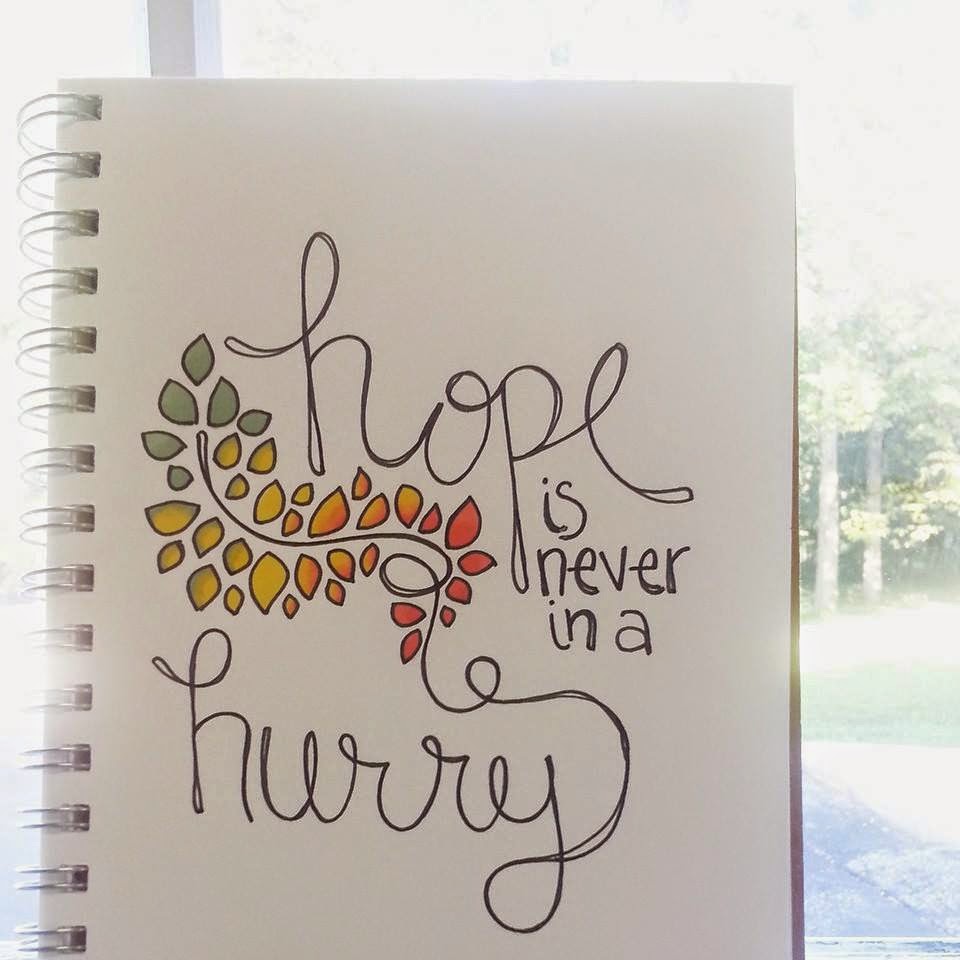 hope
is
never
in a
hurry